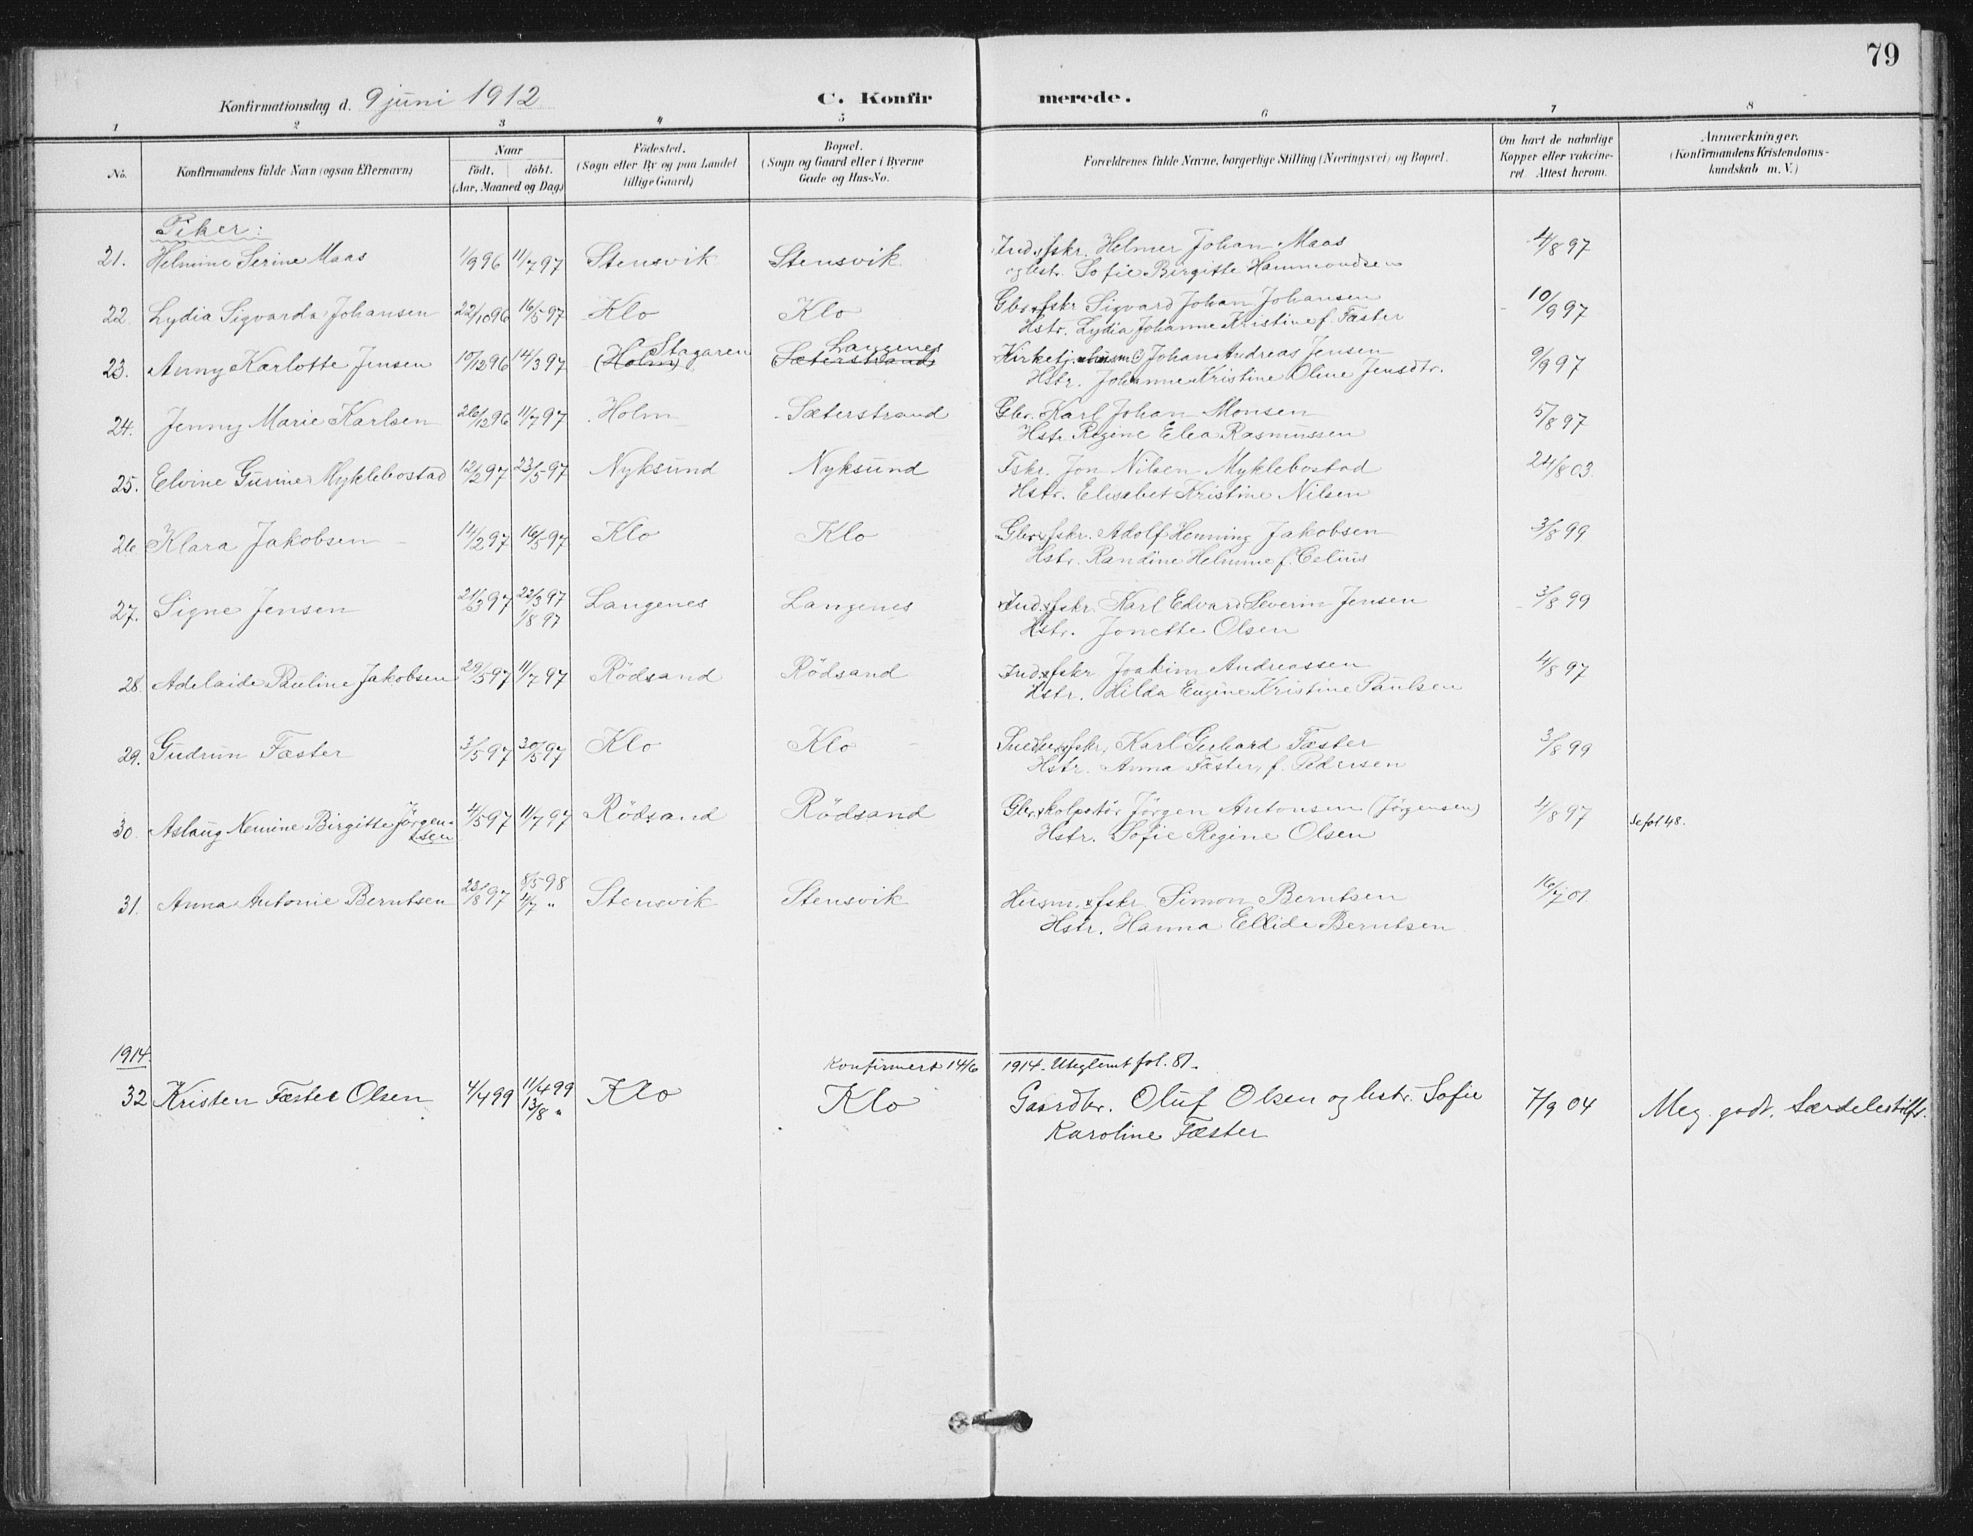 79
Konfirmationsdag d. 9 juni 1912 C. Konfirmerede.
1 2 3 4 5 6 7 8
No. Konfirmandens fulde Navn (ogsaa Efternavn) Naar født, døbt. (Aar, Maaned og Dag) Födested. (Sogn eller By og paa Landet tillige Gaard) Bopæl. (Sogn og Gaard eller i Byerne Gade og Hus-No. Forældrenes fulde Navne, borgerlige Stilling (Næringsvei) og Bopæl. Om havt de naturlige Kopper eller vakcineret. Attest herom. Anmærkninger. (Konfirmandens Kristendomskundskab m. V.)
Piker:
21. Helmine Serine Maas 1/9 96 11/7 97 Stensvik Stensvik Ind. & fskr. Helmer Johan Maas 4/8 97
og hstr. Sofie Birgitte Hammondsen
22. Lydia Sigvarda Johansen 22/10 96 16/5 97 Klo Klo Gbr. & fskr Sigvard Johan Johansen 10/9 97
Hstr. Lydia Johanne Kristine f. Fæster
Stagaren Langenes
23. Anny Karlotte Jensen 10/12 96 14/3 97 (Holm) Sæterstrand Johan Andreas Jensen 9/9 97
Hstr. Johanne Kristine Oline Jensdtr.
24. Jenny Marie Karlsen 26/12 96 11/7 97 Holm Sæterstrand Gbr. Karl Johan Monsen 5/8 97
Hstr. Regine Elea Rasmussen
25. Elvine Gurine Myklebostad 12/2 97 23/5 97 Nyksund Nyksund Fskr. Jon Nilsen Myklebostad 24/8 03
Hstr. Elisabet Kristine Nilsen
26. Klara Jakobsen 14/2 97 16/5 97 Klo Klo Gbr. & fskr. Adolf Henning Jakobsen 3/8 99
Hstr. Randine Helmine f. Celius
27. Signe Jensen 21/3 97 22/3 97 Langenes Langenes Ind. & fskr. Karl Edvard Severin Jensen 3/8 99
1/8 97 Hstr. Jonette Olsen
28. Adelaide Pauline Jakobsen 29/5 97 11/7 97 Rödsand Rödsand Ind. & fskr Joakim Andreassen 4/8 97
Hstr. Hilda Eugine Kristine Paulsen
29. Gudrun Fæster 3/5 97 30/5 97 Klo Klo fskr. Karl Gerhard Fæster 3/8 99
Hstr. Anna Fæster, f. Pedersen
30. Aslaug Nemine Birgitte Jörgensen 4/5 97 11/7 97 Rödsand Rödsand Gbr. & kolportör Jörgen Antonsen (Jörgensen) 4/8 97 Se fol. 48.
Hstr. Sofie Regine Olsen
31. Anna Antonie Berntsen 23/8 97 8/5 98 Stensvik Stensvik Husm. & fskr. Simon Berntsen 16/7 01
4/7 " Hstr. Hanna Ellide Berntsen
1914. Konfirmert 14/6 1914. Uteglemt fol. 81.
32 Kristen Fæster Olsen 4/4 99 11/4 99 Klo Klo Gaardbr. Oluf Olsen og hstr. Sofie 7/9 04 Meg. godt. Særdelestilfr.
13/8 " Karoline Fæster